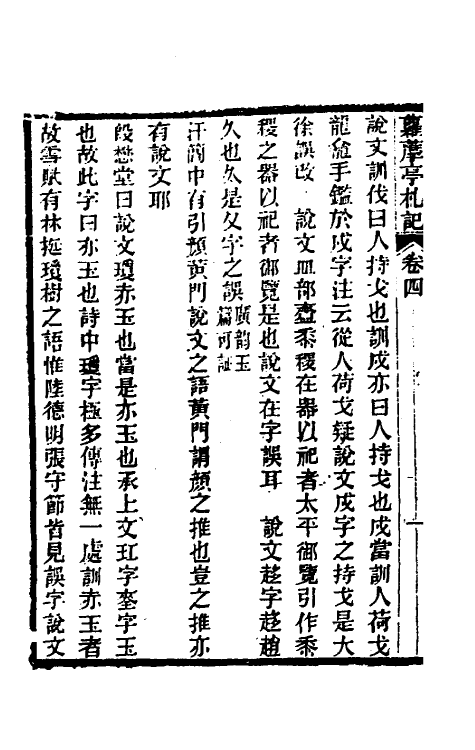 蘿藦亭札記 卷四
說文訓伐曰人持戈也訓戍亦曰人持戈也戍當訓人荷戈
龍龕手鑑於戍字注云從人荷戈疑說文戍字之持戈是大
徐誤改 說文皿部齍黍稷在器以祀者太平御覽引作黍
稷之器以祀者御覽是也說文在字誤耳 說文趍字趍趙
久也久是夂字之誤廣韵玉篇可証
汗簡中有引顏黃門說文之語黃門謂顏之推也豈之推亦
有說文耶
段懋堂曰說文瓊赤玉也當是亦玉也承上文玒字坴字玉
也故此字曰亦玉也詩中瓊字極多傳注無一處訓赤玉者
故雪賦有林挺瓊樹之語惟陸德明張守節皆見誤字說文